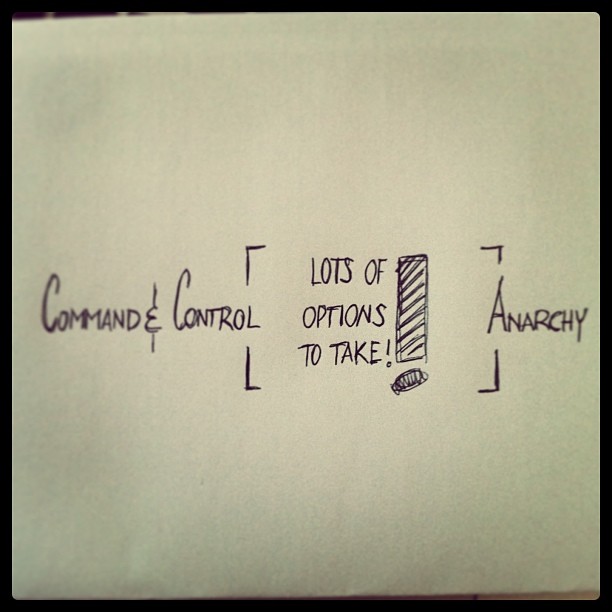 COMMAND & CONTROL
LOTS OF
OPTIONS
TO TAKE!
ANARCHY